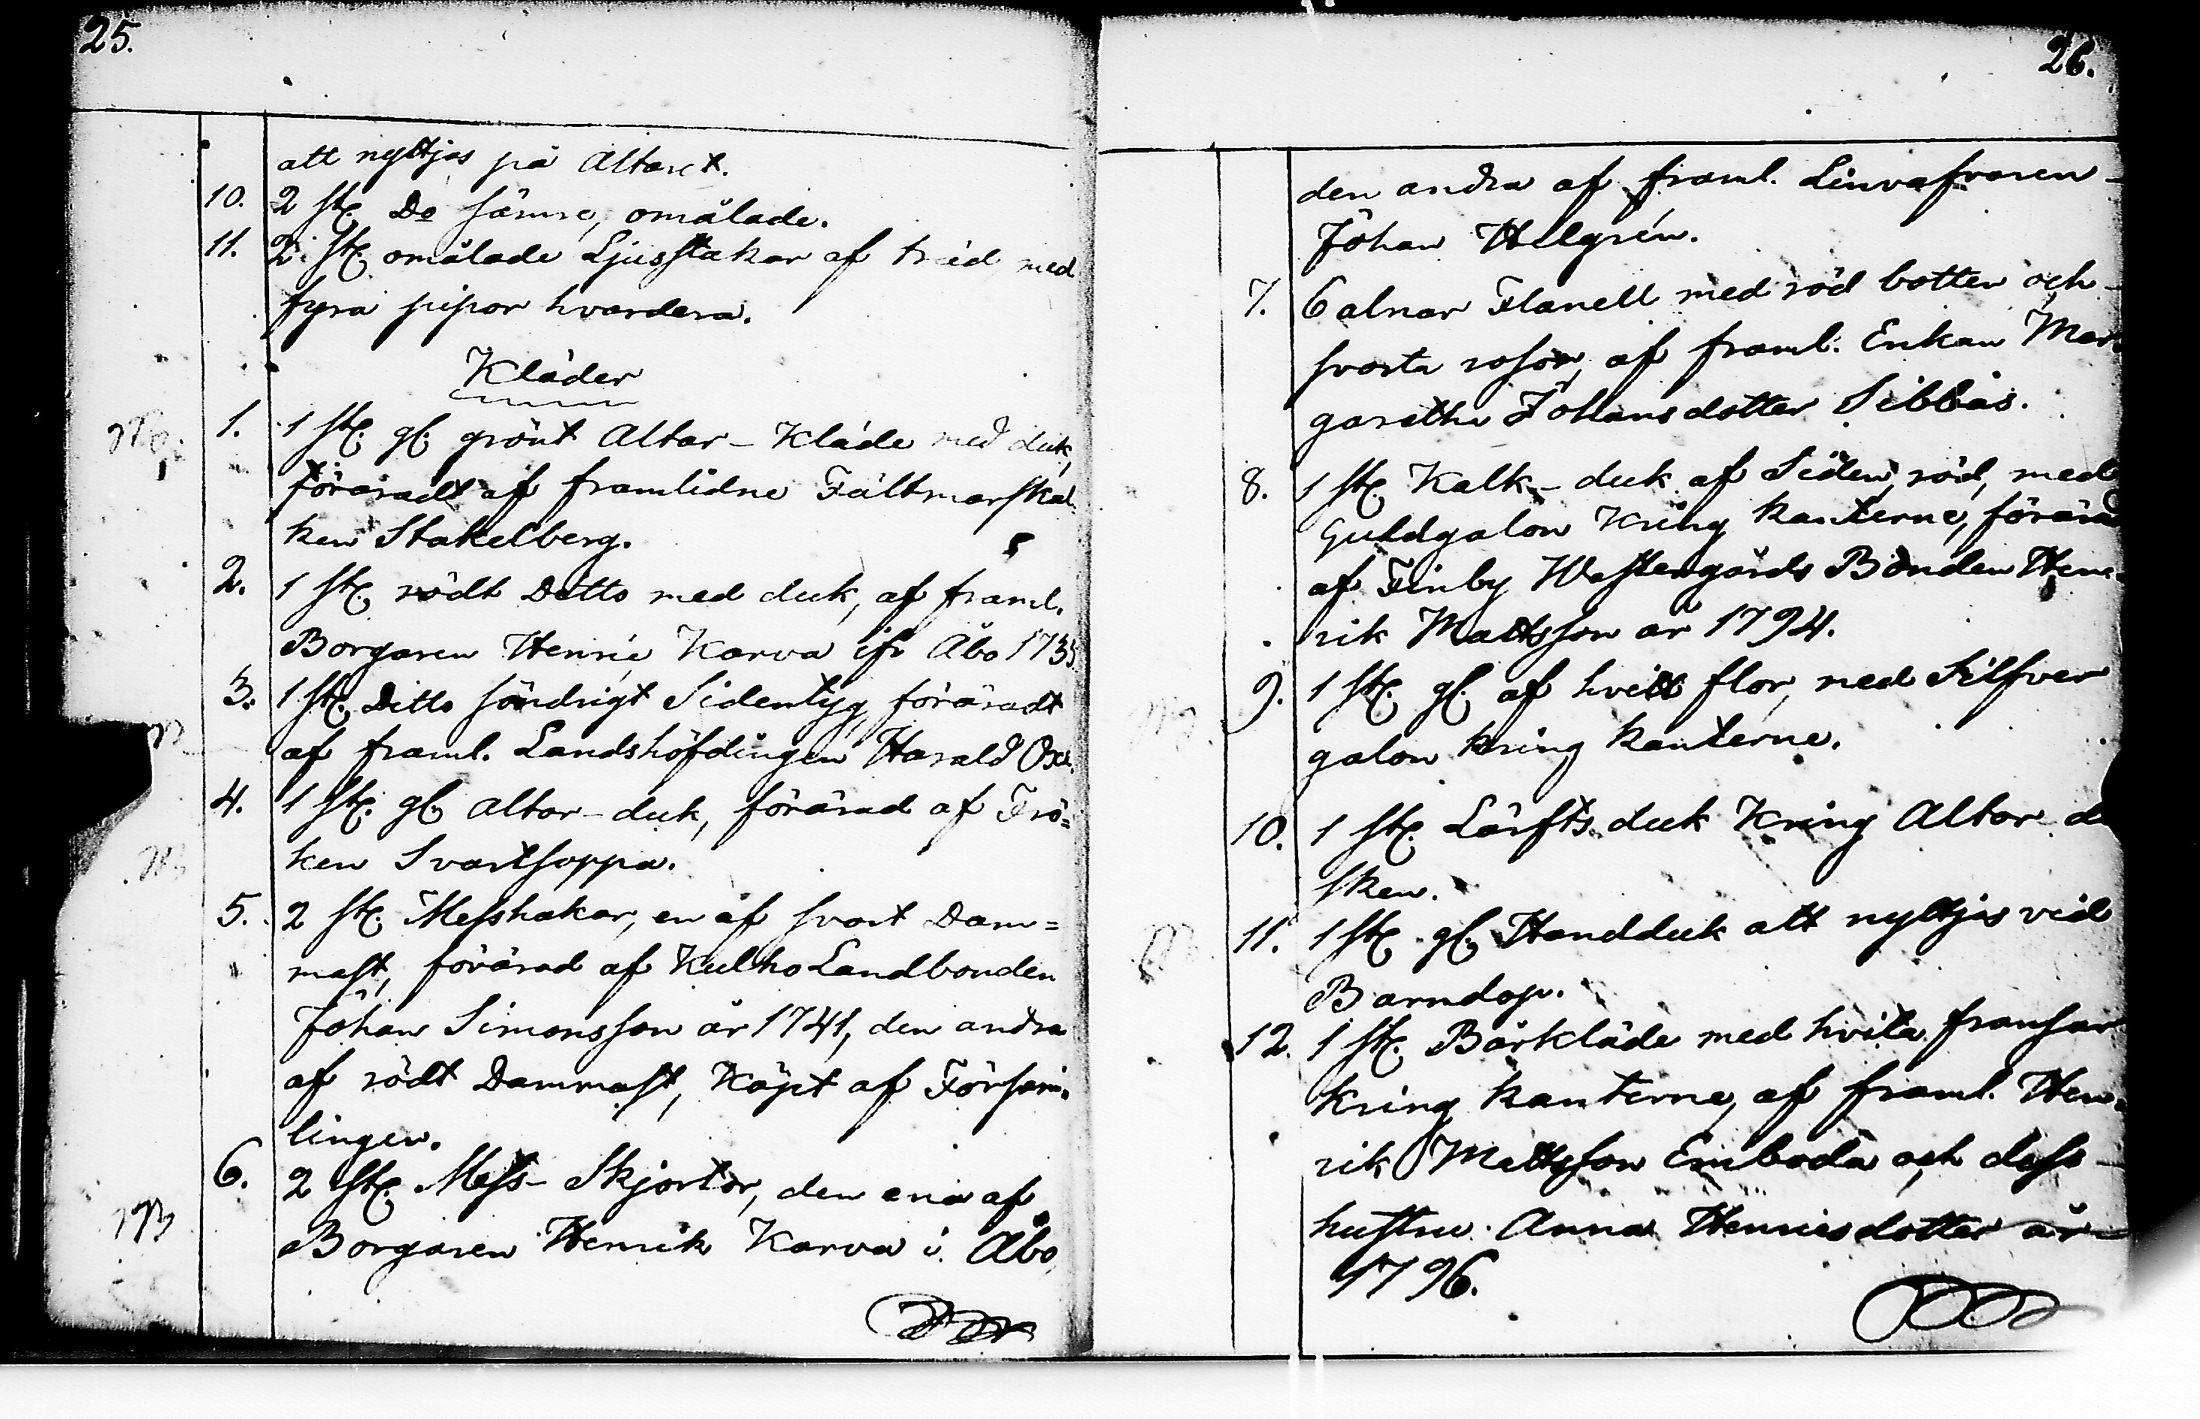 25.
att nyttjas på Altaret.
10. 2 st. Do sämre, omålade.
11. 2 st. omålade Ljusstakar af träd med
fyra pipor hvardera.
Kläder
1. 1 st. gl. grönt Altar-Kläde med duk,
föräradt af framlidne Fältmarskal
ken Stakelberg.
2. 1 st. rödt Ditto med duk, af framl.
Borgaren Henric Karva ifr Åbo 1735
3. 1 st. Ditto söndrigt Sidentyg föräradt
af framl. Landshöfdingen Harald Oxe.
4. 1 st. gl. altar-duk, förärad af Frö=
ken Svartsoppa.
5. 2 st. Messhakar, en af svart Dam=
mast, förärad af Kulho Landbonden
Johan Simonsson år 1741, den andra
af rödt Dammast, Köpt af Försam-
lingen.
6. 2 st. Mess-Skjortor, den ena af
Borgaren Henrik Karva i Åbo,
26.
den andra af framl. Linvafvaren
Johan Helgrén.
7. 6 alnar Flanell med röd botten och
svarta rosor, af framl. Enkan Mar-
garetha Johansdotter Sibbås.
8. 1 st. Kalk-duk af Siden, röd, med
Guldgalon Kring kanterne, förära
af Finby Westergårds Bonden Hen-
rik Mattsson år 1794.
9. 1 st. gl. af hvitt flor, med Silfver
galon kring kanterne.
10. 1 st. Lärfts duk Kring Altar di
sken.
11. 1 st. gl. Handduk att nyttjas vid
Barndop.
12. 1 st. Bårkläde med hvita fransar
kring kanterne, af framl. Hen-
rik Mattsson Emboda och dess
hustru Anna Henricsdotter år
1796.